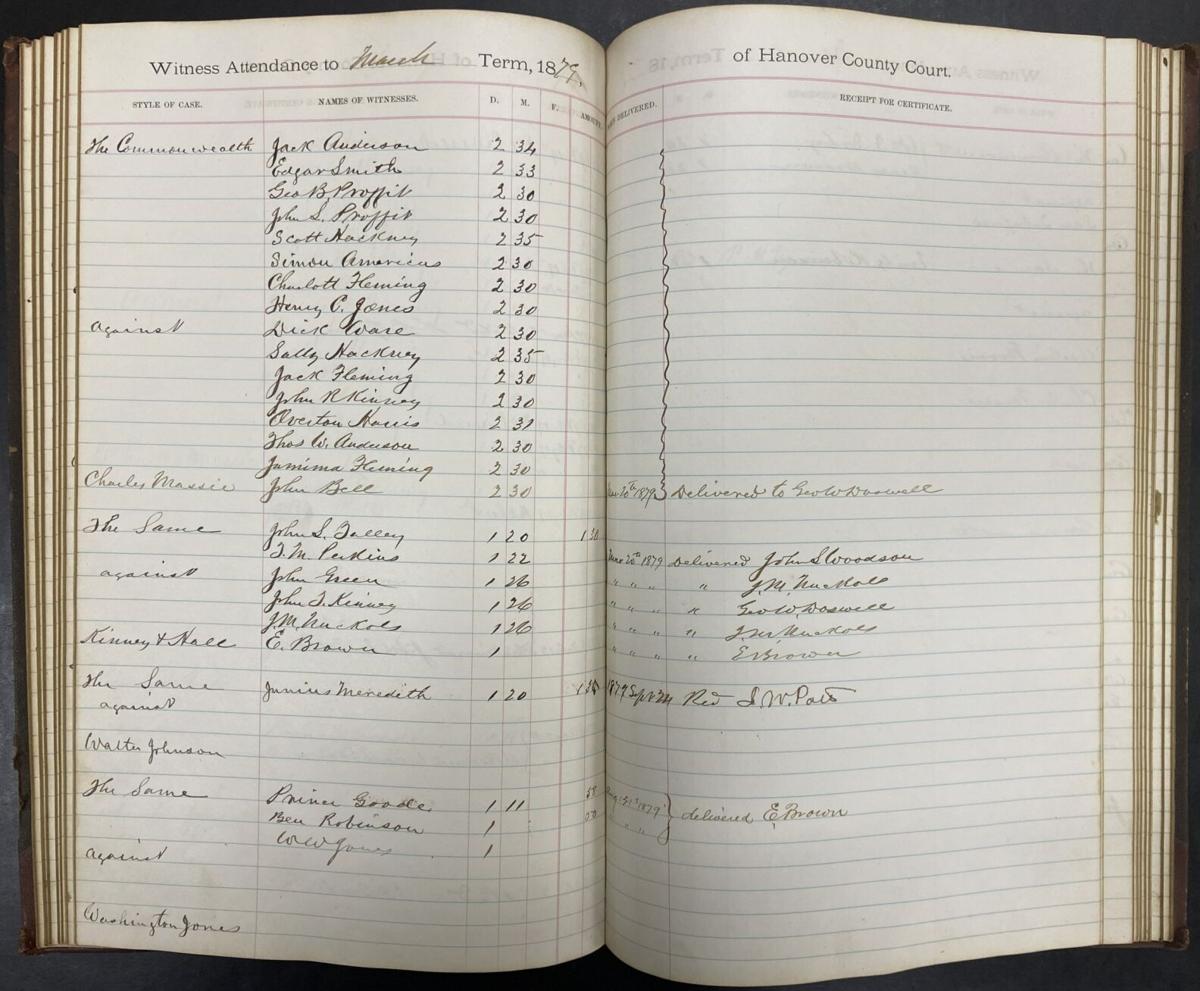 Witness Attendance to March Term, 1879, of Hanover County Court.
STYLE OF CASE. NAMES OF WITNESSES. D. M. F. AMOUNT. DELIVERED. RECEIPT FOR CERTIFICATE.
The Commonwealth Jack Anderson 2 34
Edgar Smith 2 33
Geo B Proffit 2 30
John S. Proffit 2 30
Scott Hackney 2 35
Simon Americus 2 30
Charlott Fleming 2 30
Henry C. Jones 2 30
against Dick Ware 2 30
Sally Hackney 2 35
Jack Fleming 2 30
John R Kinney 2 30
Overton Harris 2 31
Thos W. Anderson 2 30
Jamima Fleming 2 30
Charles Massie John Bell 2 30 Mar 20th 1879 Delivered to Geo W Doswell
The Same John S. Talley 1 20 1 30
T. M. Perkins 1 22 Mar 20th 1879 Delivered John S Woodson
against John Green 1 26 " " " " J. M. Nuckols
John T. Kinney 1 26 " " " " Geo W. Doswell
J. M. Nuckols 1 26 " " " " J. M. Nuckols
Kinney & Hall E. Brown 1 " " " " E Brown
The Same Junius Meredith 1 20 1879 Sept 24 Red J. W.
against
Walter Johnson
The Same Prince Goode 1 11 1879 delivered E Brown
Ben Robinson 1 " "
W W Jones 1
against
Washington Jones